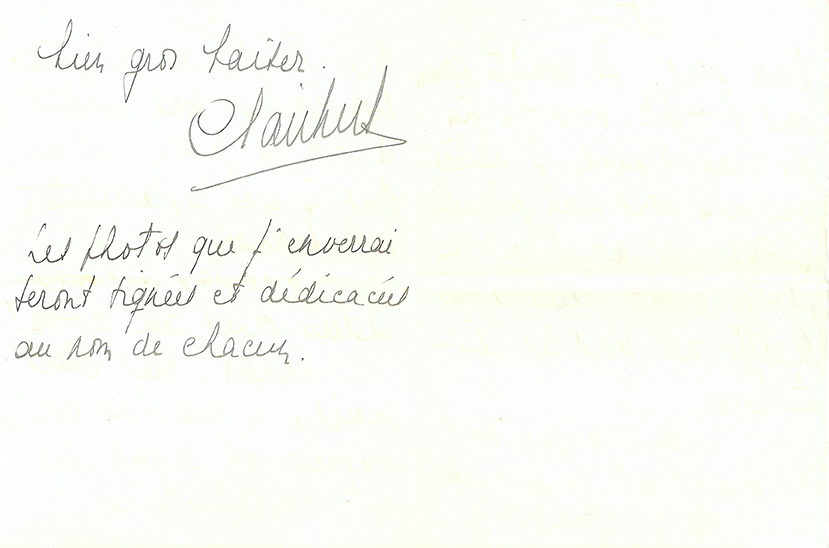 bien gros baiser.
Les photos que j'enverrai
seront signées et dédicacées
au nom de chacun.